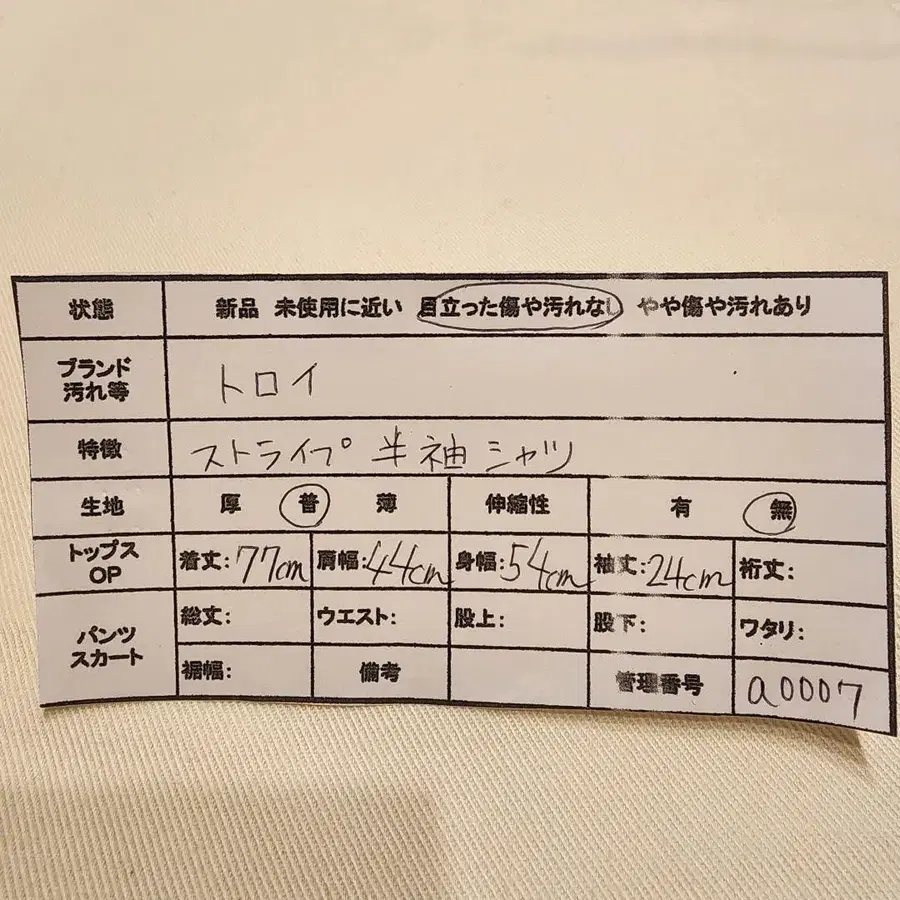 状態 新品 未使用に近い 目立った傷や汚れなし やや傷や汚れあり
ブランド
汚れ等 トロイ
特徴 ストライプ 半袖 シャツ
生地 厚 普 薄 伸縮性 有 無
トップス
OP 着丈:77cm 肩幅:44cm 身幅:54cm 袖丈:24cm 裄丈:
パンツ
スカート 総丈: ウエスト: 股上: 股下: ワタリ:
裾幅: 備考 管理番号 a0007